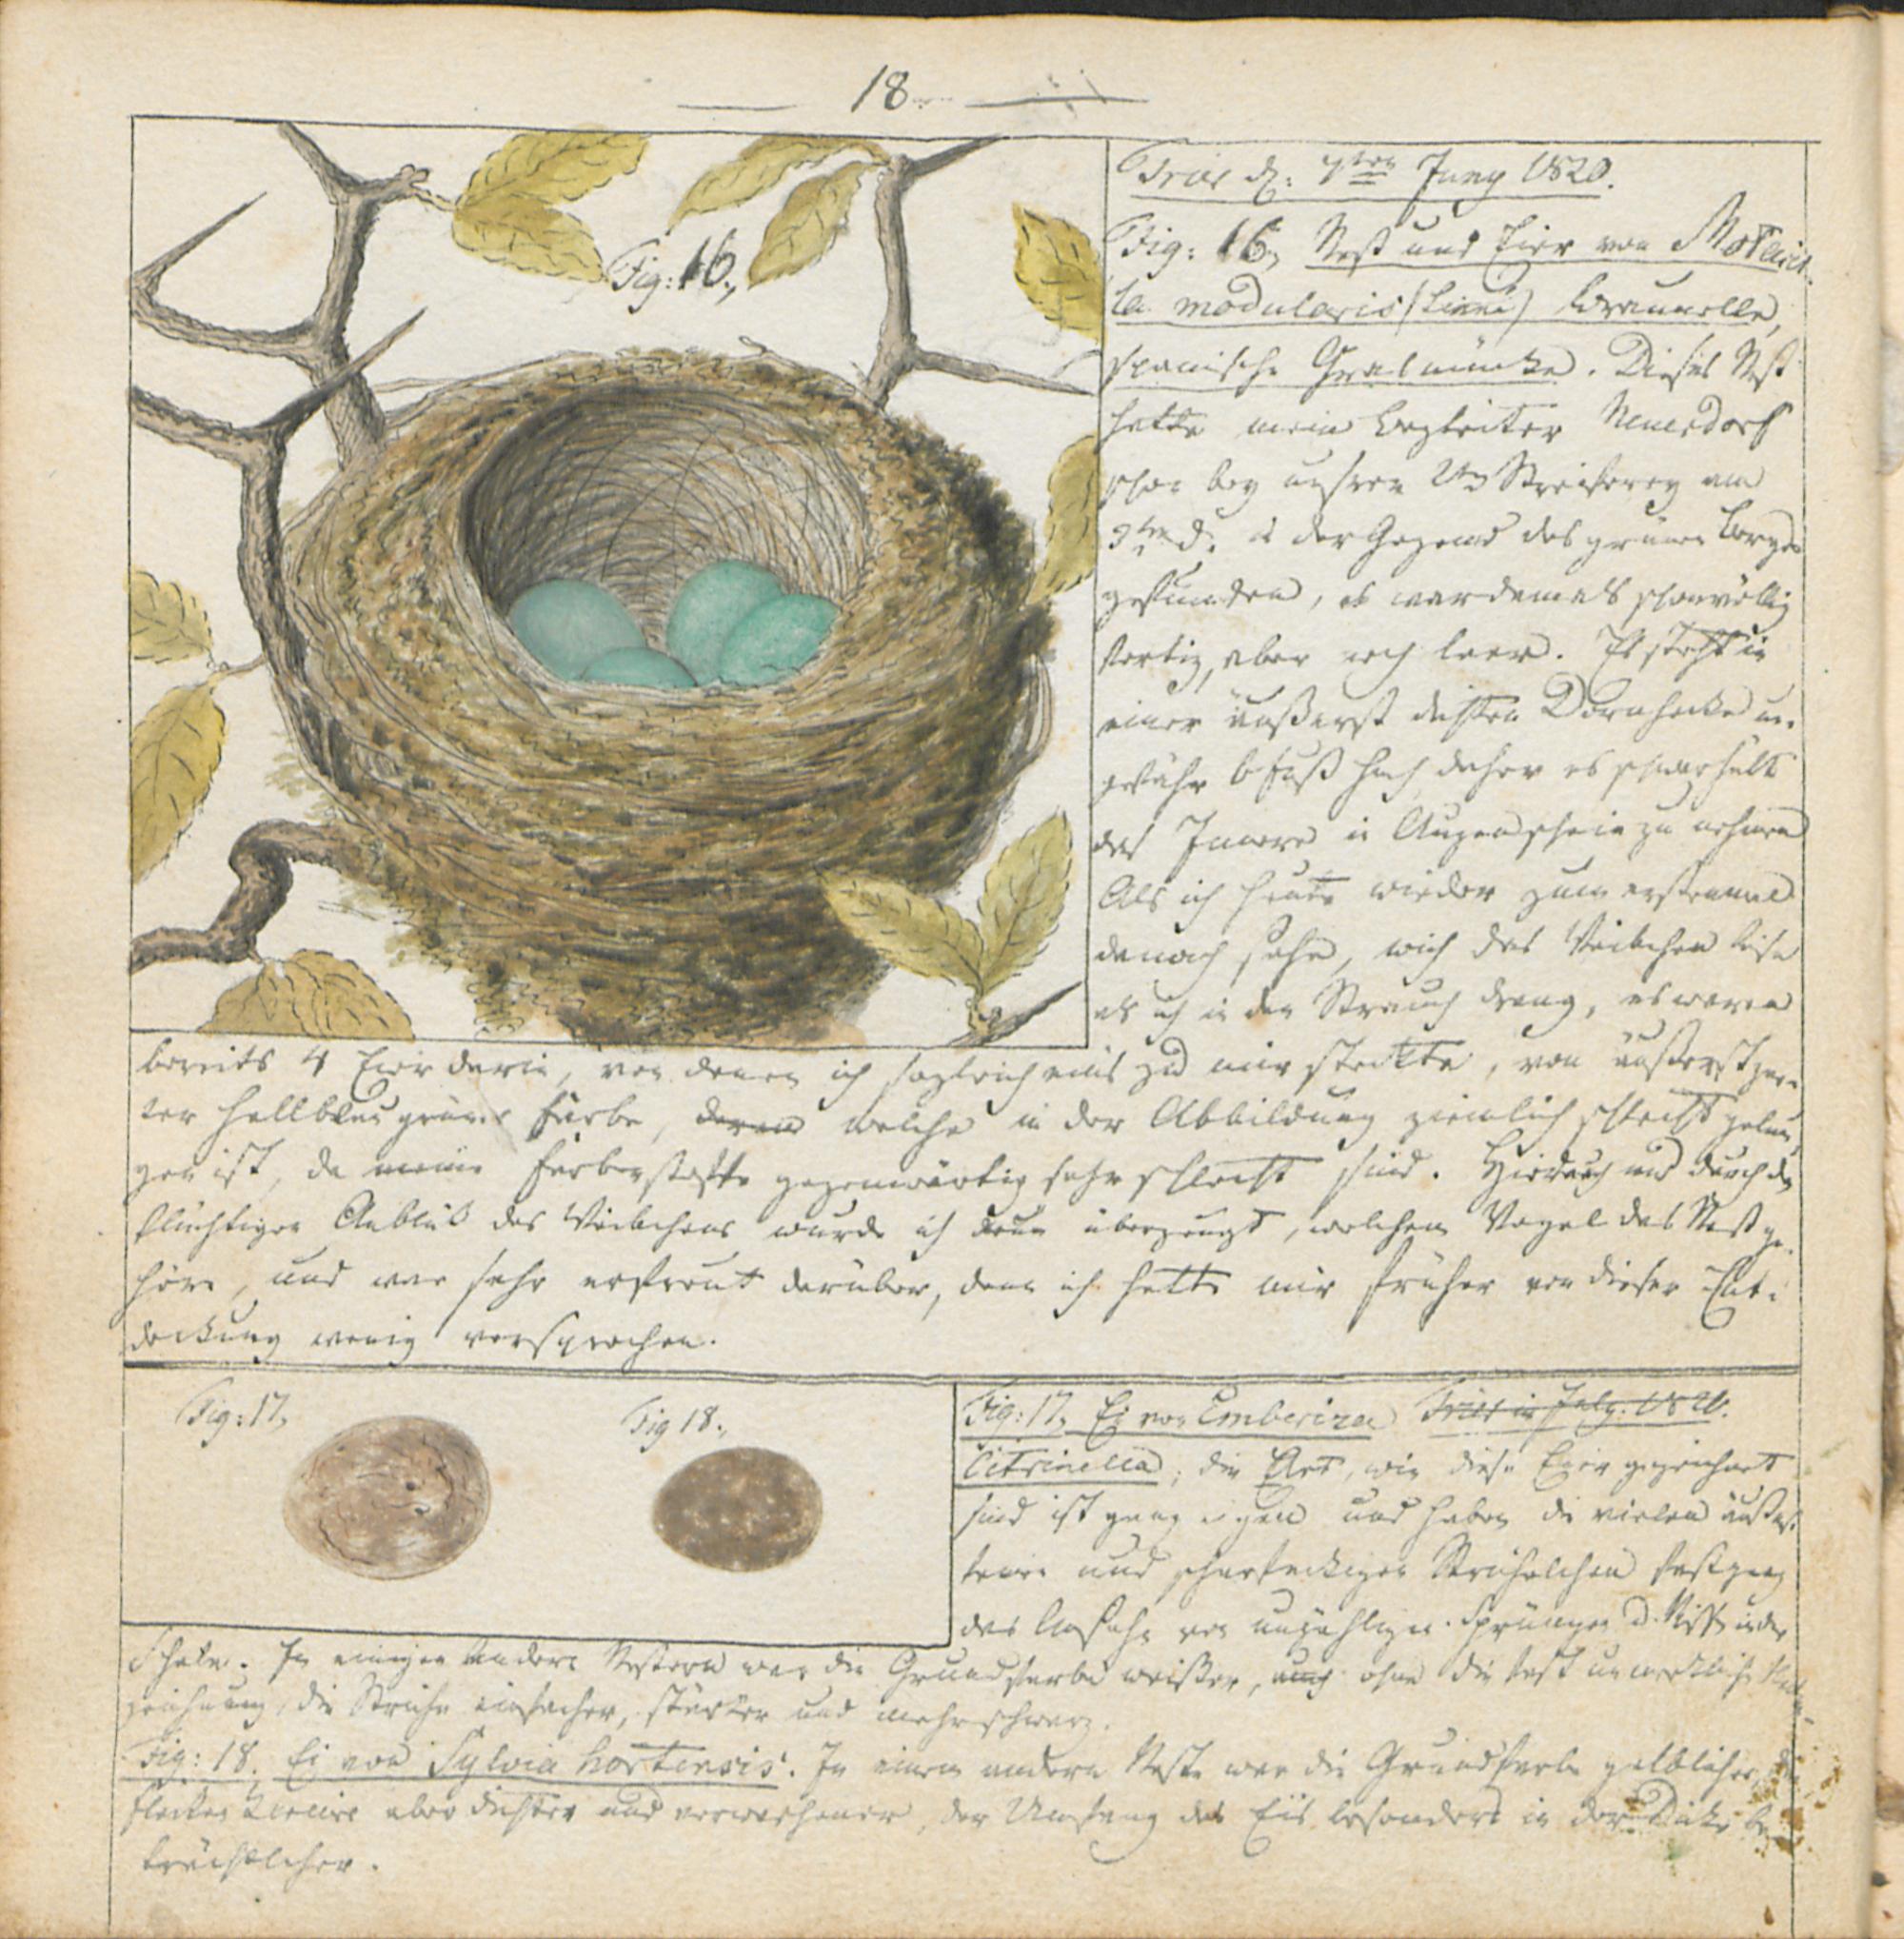 18
Fig: 16.,
Trier d: 7ten Juny 1820.
Fig: 16, Nest und Eier von Motacil-
la modularis (Linné) Braunelle,
spanische Grasmücke. Dieses Nest
hatte mein Begleiter Neuerdorf
schon bey unsrer Streiferey am
3ten d. in der Gegend des grünen Berges
gefunden, es war damals schon völlig
fertig, aber noch leer. Es steht in
einer äußerst dichten Dornhecke un-
gefähr 6 Fuß hoch daher es schwer hält
das Innere in Augenschein zu nehmen
Als ich heute wieder zum erstenmal
danach sehe, wich das Weibchen leise
als ich in den Strauch drang, es waren
bereits 4 Eier darin, von denen ich sogleich eins zu mir steckte, von äußerst zar-
ter hellblaugrüner Farbe, deren welche in der Abbildung ziemlich schlecht gelun-
gen ist, da meine Farbenstoffe gegenwärtig sehr schlecht sind. Hierdurch und durch den
flüchtigen Anblick des Weibchens wurde ich denn überzeugt, welchem Vogel das Nest ge-
höre, und war sehr erfreut darüber, denn ich hatte mir früher von dieser Ent-
deckung wenig versprochen.
Fig: 17,
Fig 18.,
Fig: 17, Ei von Emberiza Trier im July. 1820.
Citrinella; die Art, wie diese Eier gezeichnet
sind ist ganz eigen und haben die vielen äußerst
feinen und scharfeckigen Strichelchen fast ganz
das Ansehn von unzähligen Sprüngen u. Rissen in der
Schale. In einigen andern Nestern war die Grundfarbe weißer, auch ohne die fast unmerkliche
zeichnung, die Striche einfacher, stärker und mehr schwarz.
Fig: 18. Ei von Sylvia hortensis. In einem andern Neste war die Grundfarbe gelblicher, die
Flecken kleiner aber dichter und verwaschener, der Umfang des Eis besonders in der Dicke be-
trächtlicher.